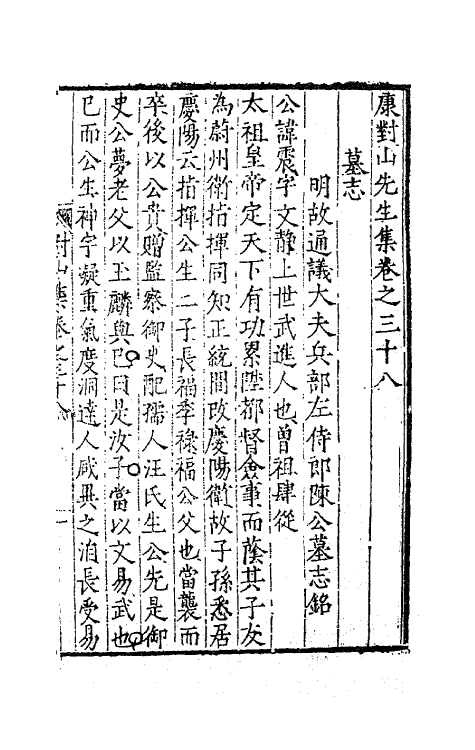 康對山先生集卷之三十八
墓志
明故通議大夫兵部左侍郎陳公墓志銘
公諱震字文靜上世武進人也曾祖肆從
太祖皇帝定天下有功累陞都督僉事而蔭其子友
為蔚州衛指揮同知正統間改慶陽衛故子孫悉居
慶陽云指揮公生二子長福季祿福公父也當襲而
卒後以公貴贈監察御史配孺人汪氏生公先是御
史公夢老父以玉麟與已曰是汝子當以文易武也
已而公生神宇凝重氣度洞達人咸異之洎長受易
對山集卷之三十八
一